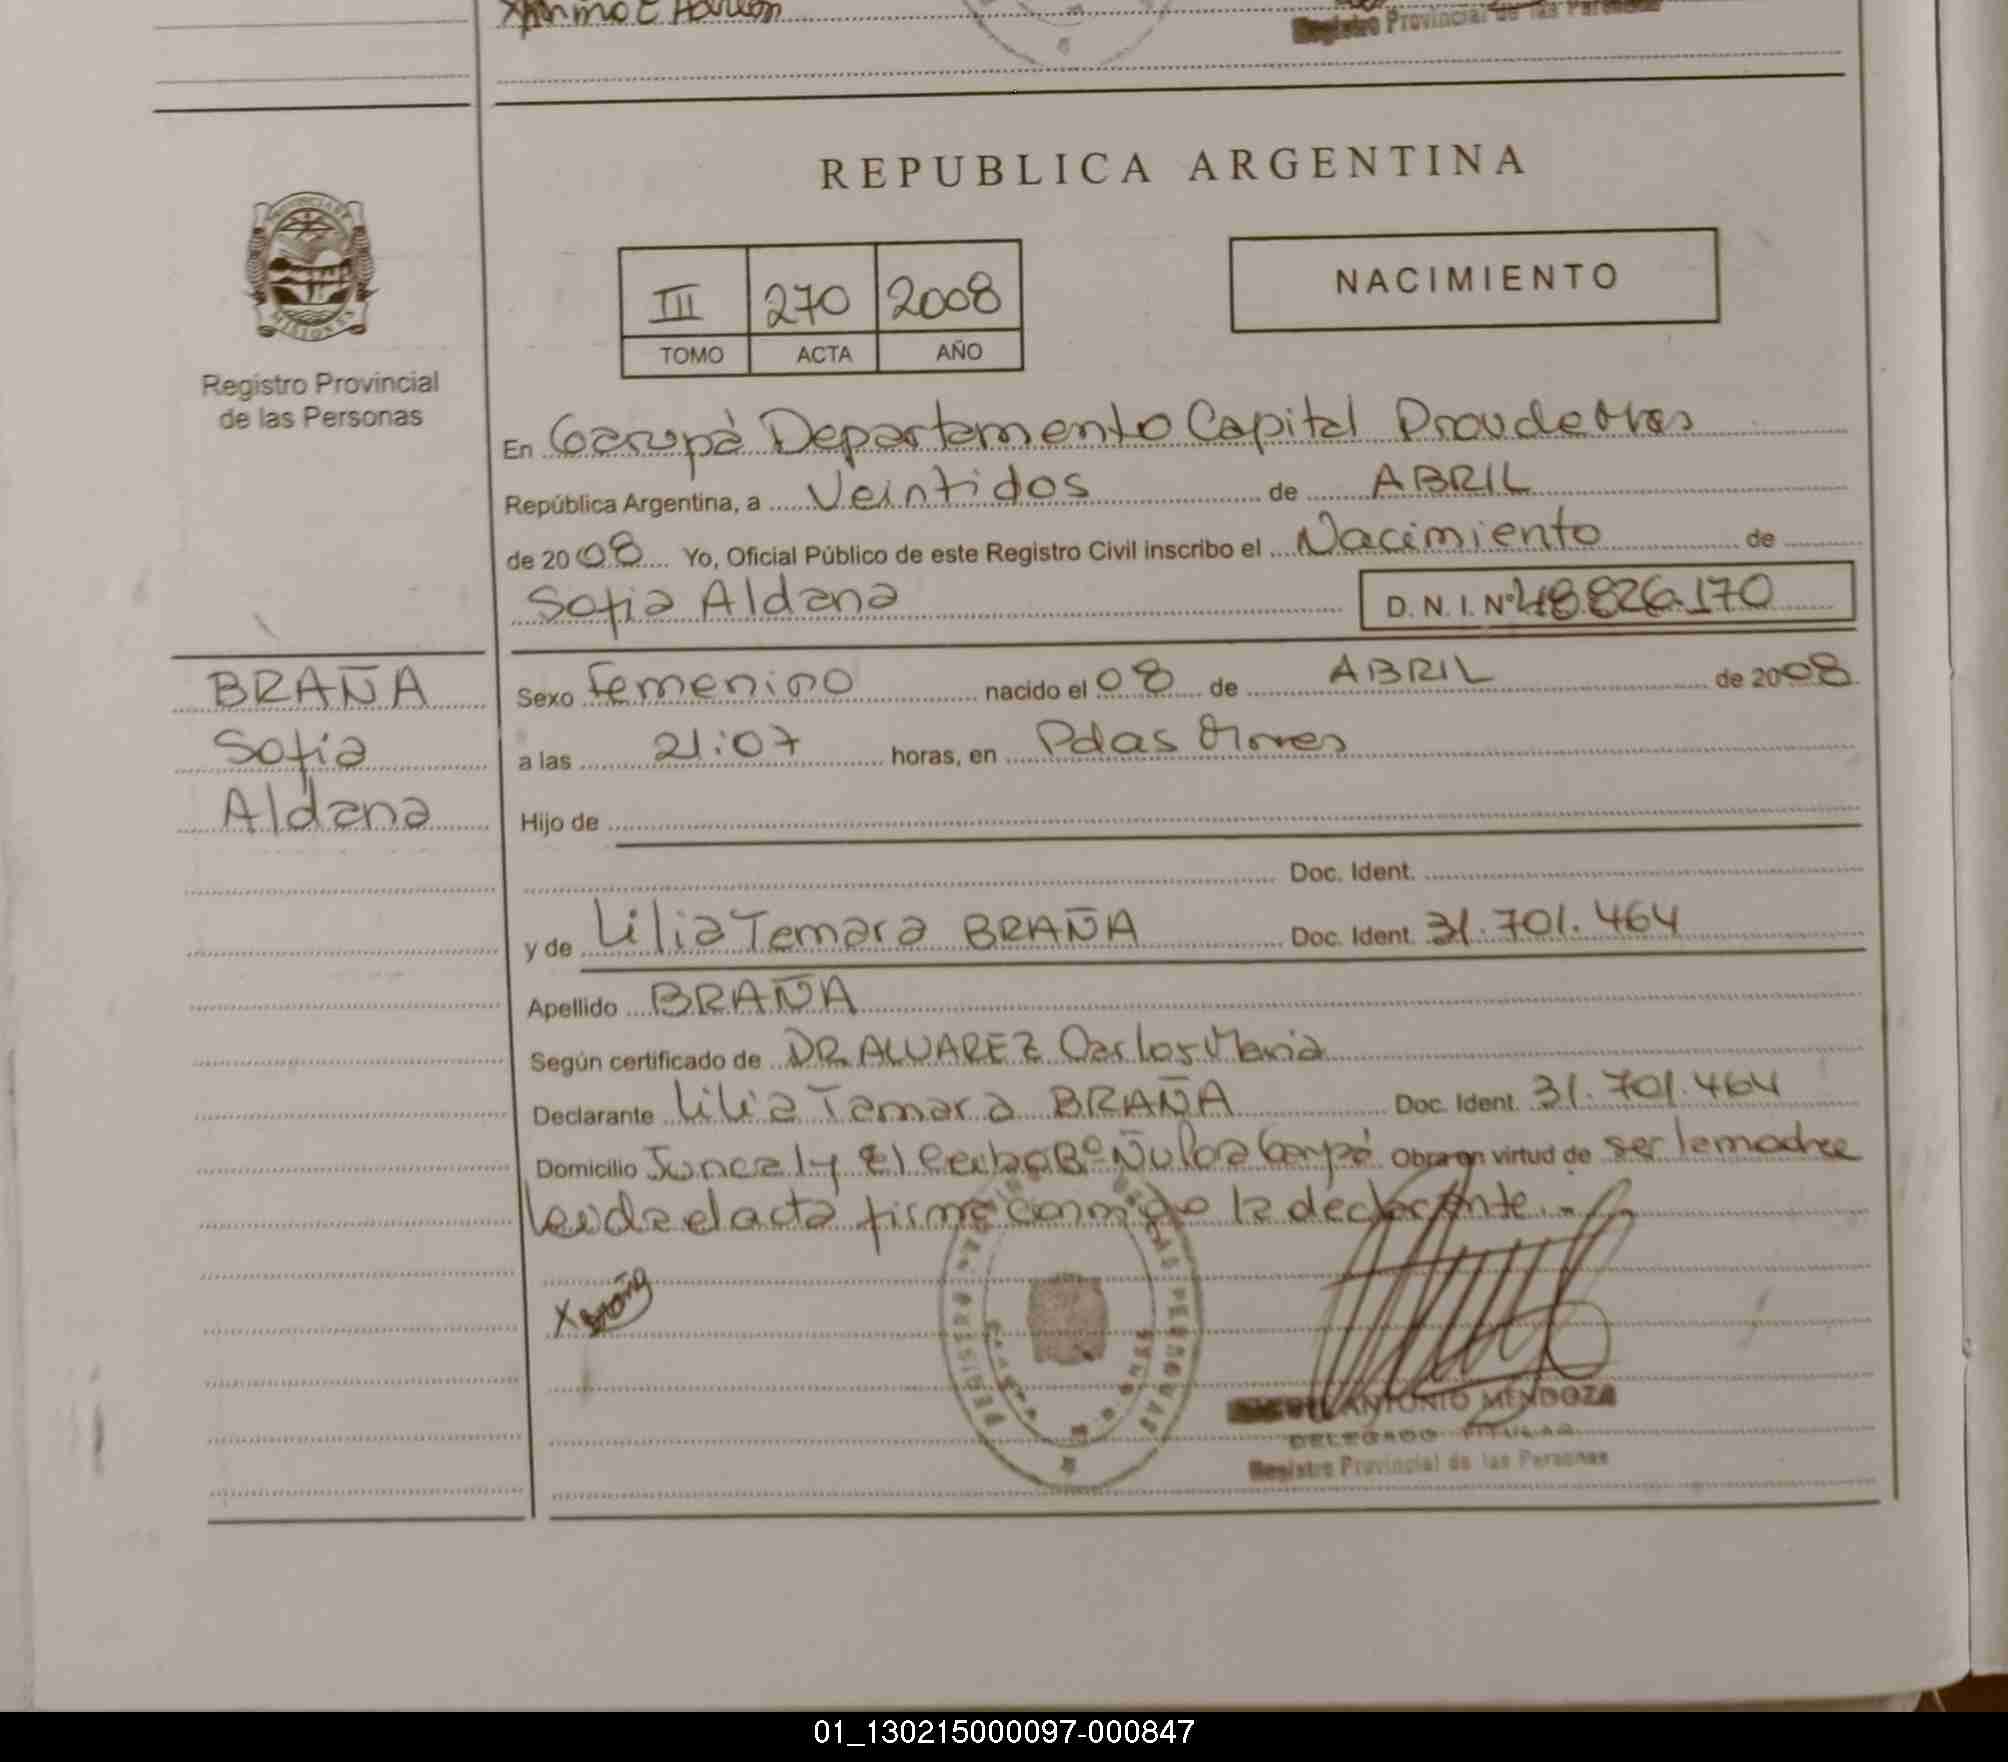 Registro Provincial de las Personas
REPUBLICA ARGENTINA
PROVINCIA DE MISIONES
III 270 2008
TOMO ACTA AÑO
NACIMIENTO
Registro Provincial
de las Personas
En Garupá Departamento Capital Prov de Mnes
República Argentina, a Veintidos de ABRIL
de 2008 Yo, Oficial Público de este Registro Civil inscribo el Nacimiento de
Sofia Aldana D.N.I. Nº 48.826.170
BRAÑA
Sofia
Aldana
Sexo Femenino nacido el 08 de ABRIL de 2008
a las 21:07 horas, en Pdas Mnes
Hijo de
Doc. Ident.
y de Lilia Tamara BRAÑA Doc. Ident. 31.701.464
Apellido BRAÑA
Según certificado de DR. ALVAREZ Carlos Maria
Declarante Lilia Tamara BRAÑA Doc. Ident. 31.701.464
Domicilio Juncal y El Bº Garupá Obra en virtud de ser la madre
Leida el acta firma conmigo la declarante.-
X Braña
ANTONIO MENDOZA
DELEGADO TITULAR
Registro Provincial de las Personas
01_130215000097-000847